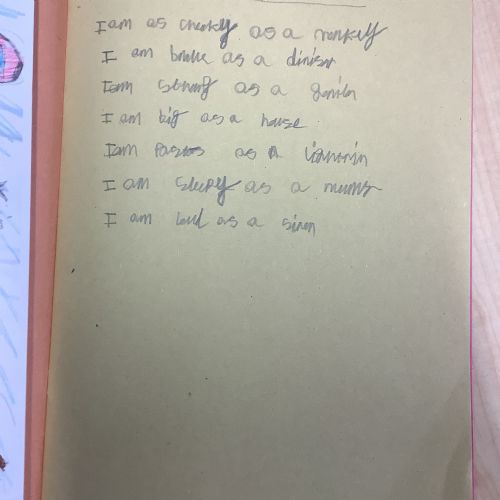 I am as cheeky as a monkey
I am as a
I am strong as a gorila
I am big as a house
I am as a
I am sleepy as a
I am loud as a siren